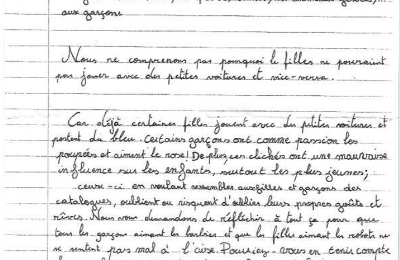 aux garçons
Nous ne comprenons pas pourquoi le filles ne pourraient
pas jouer avec des petites voitures et vice-versa.
Car déjà certaines filles jouent avec des petites voitures et
portent du bleu. Certains garçons ont comme passion les
poupées et aiment le rose! De plus ces clichés ont une mauvaise
influence sur les enfants, surtout les plus jeunes;
ceux-ci en voulant ressembler aux filles et garçons des
catalogues, oublient ou risquent d'oublier leurs propres goûts et
rêves. Nous vous demandons de réfléchir à tout ça pour que
tous les garçons aimant les barbies et que les filles aimant les robots ne
se sentent pas mal à l'aise. Pourriez-vous en tenir compte